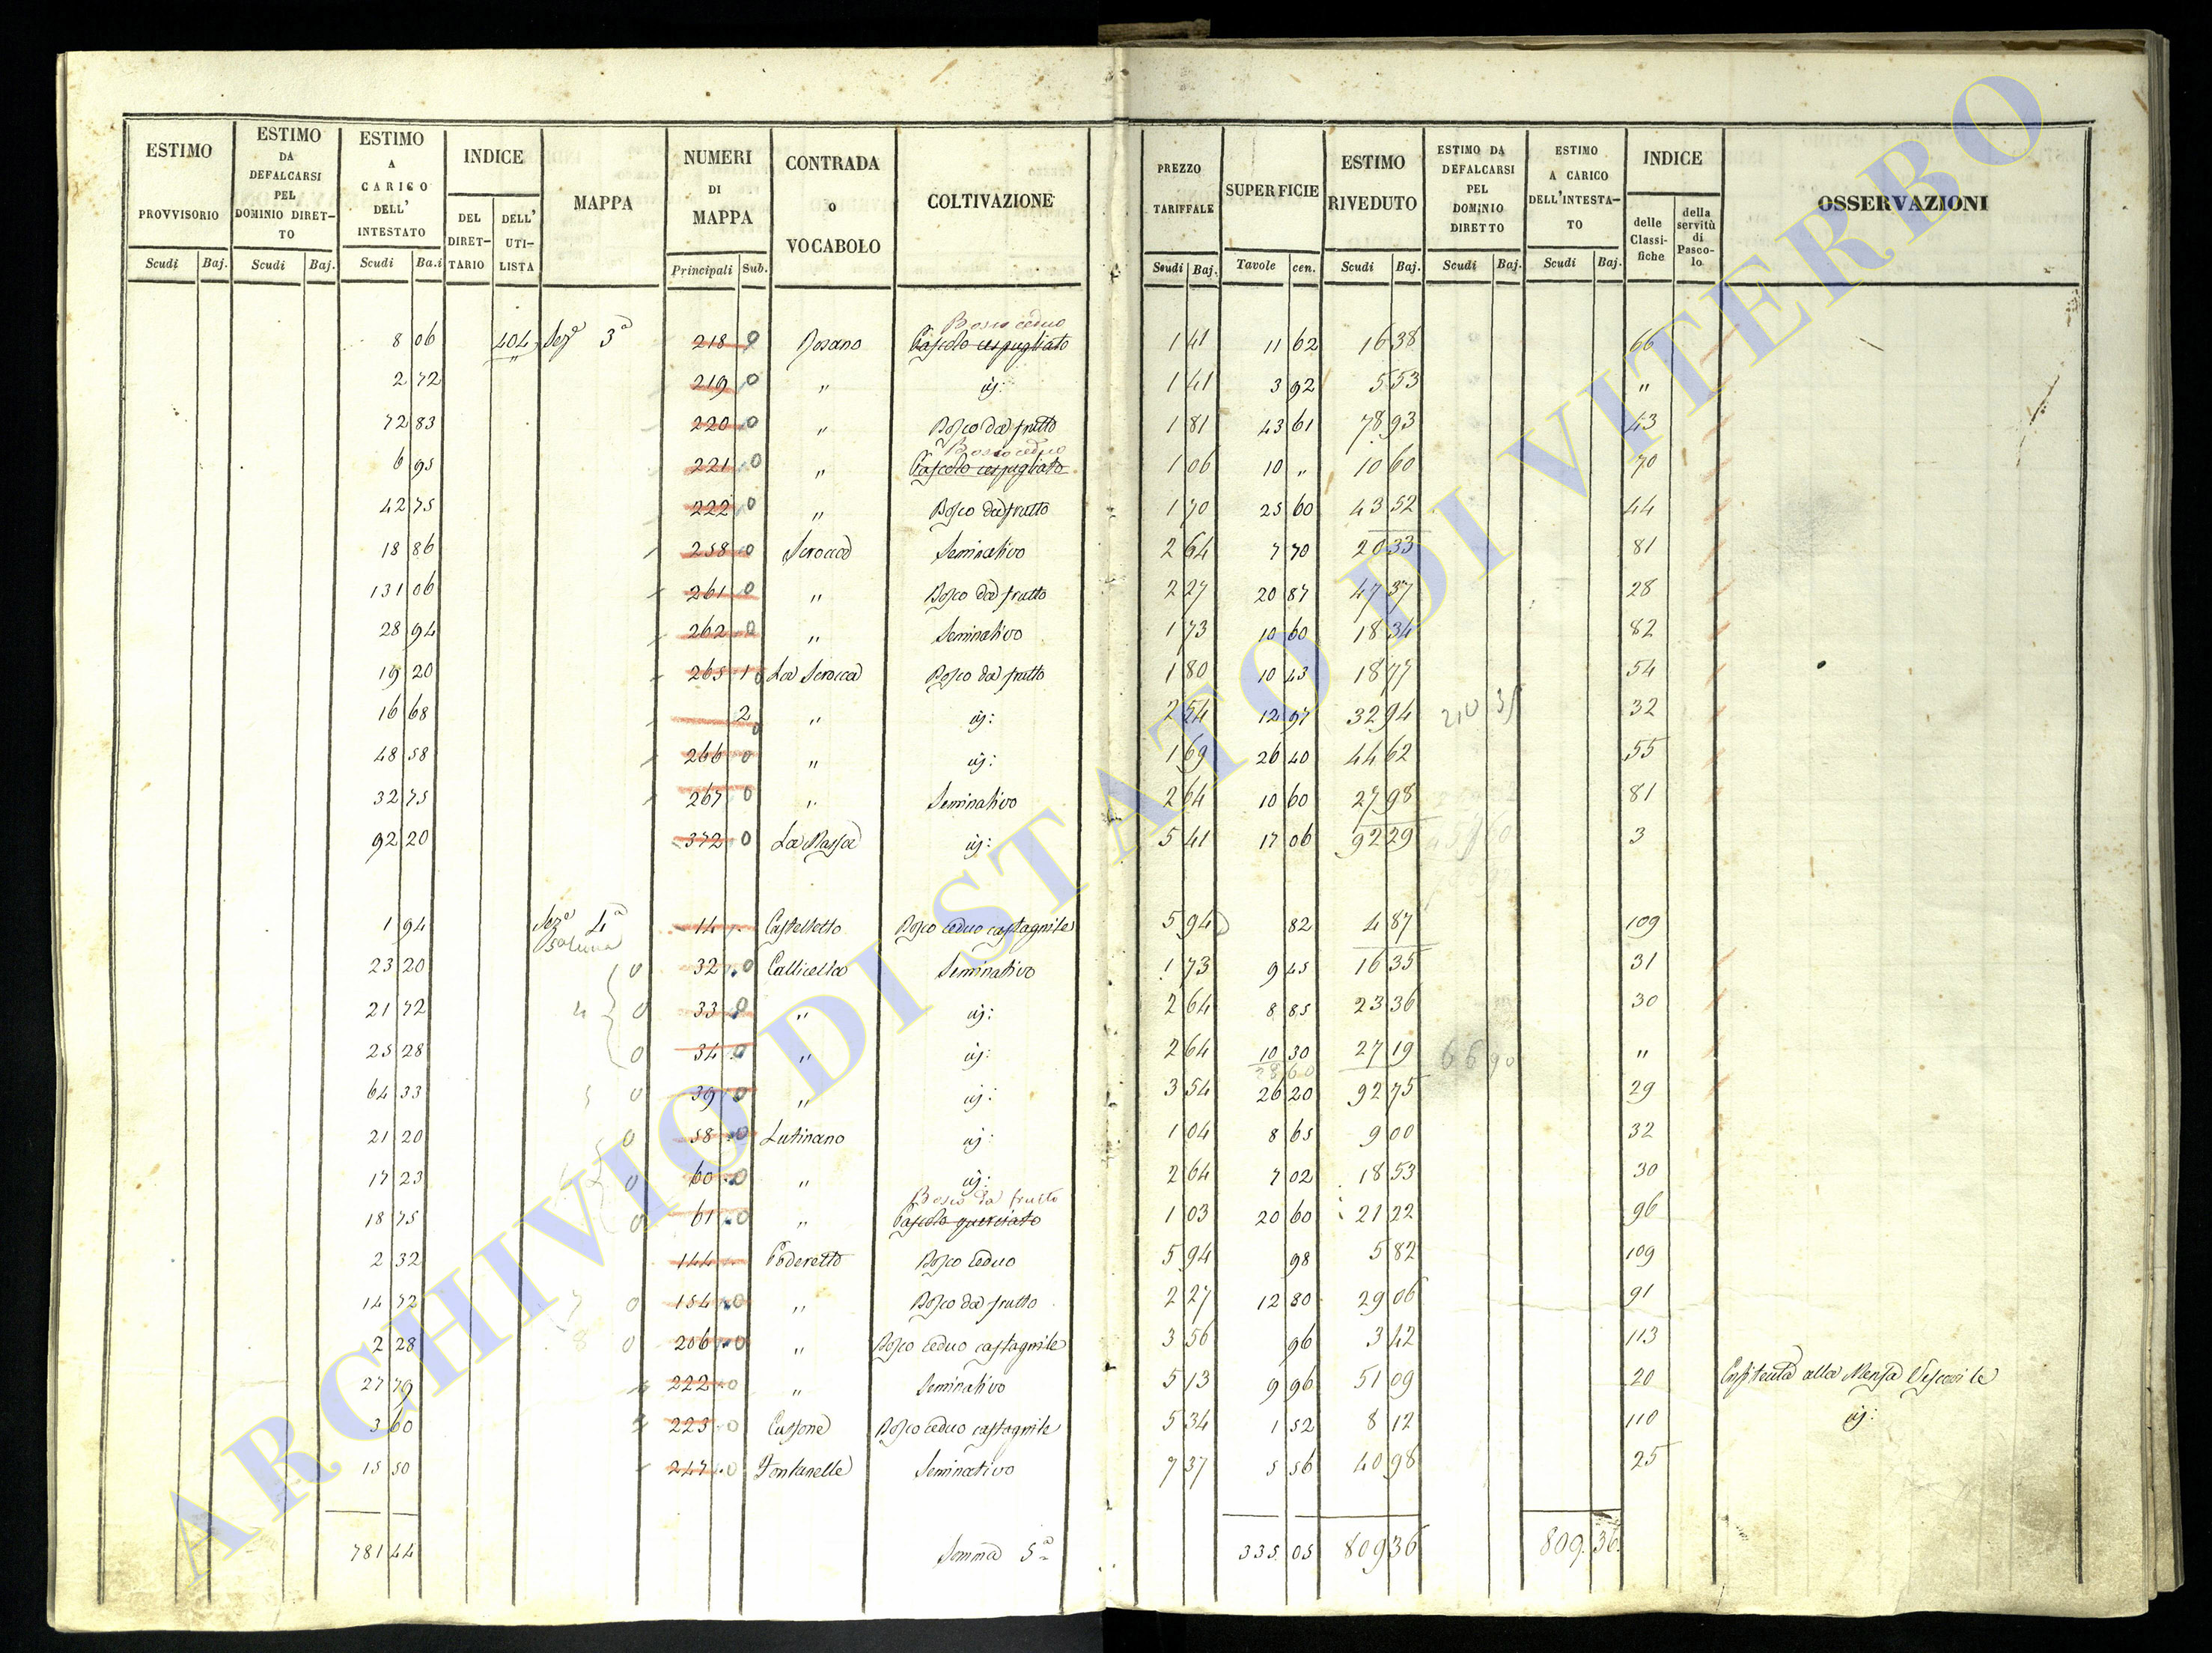 ESTIMO PROVVISORIO | ESTIMO DA DEFALCARSI PEL DOMINIO DIRET-TO | ESTIMO A CARICO DELL' INTESTATO | INDICE DEL DIRET-TARIO | DELL' UTI-LISTA | MAPPA | NUMERI DI MAPPA | CONTRADA o VOCABOLO | COLTIVAZIONE | PREZZO TARIFFALE | SUPERFICIE | ESTIMO RIVEDUTO | ESTIMO DA DEFALCARSI PEL DOMINIO DIRETTO | ESTIMO A CARICO DELL'INTESTA-TO | INDICE delle Classi-fiche | della servitù di Pasco-lo | OSSERVAZIONI
Scudi | Baj. | Scudi | Baj. | Scudi | Ba.i | Principali | Sub. | Scudi | Baj. | Tavole | cen. | Scudi | Baj. | Scudi | Baj. | Scudi | Baj.
Bosco ceduo
8 06 | 404 | Sezº 3ª | 218 0 | Rosano | Pascolo cespugliato | 1 41 | 11 62 | 16 38 | 66
2 72 | 219 0 | " | id: | 1 41 | 3 92 | 5 53 | "
72 83 | 220 0 | " | Bosco da frutto | 1 81 | 43 61 | 78 93 | 43
Bosco ceduo
6 95 | 221 0 | " | Pascolo cespugliato | 1 06 | 10 " | 10 60 | 70
42 75 | 222 0 | " | Bosco da frutto | 1 70 | 25 60 | 43 52 | 44
18 86 | 258 0 | Scrocca | Seminativo | 2 64 | 7 70 | 20 33 | 81
131 06 | 261 0 | " | Bosco da frutto | 2 27 | 20 87 | 47 37 | 28
28 94 | 262 0 | " | Seminativo | 1 73 | 10 60 | 18 34 | 82
19 20 | 265 1 0 | La Scrocca | Bosco da frutto | 1 80 | 10 43 | 18 77 | 54
16 68 | 2 0 | " | id: | 2 54 | 12 97 | 32 94 | 210 35 | 32
48 58 | 266 0 | " | id: | 1 69 | 26 40 | 44 62 | 55
32 75 | 267 0 | " | Seminativo | 2 64 | 10 60 | 27 98 | 81
92 20 | 372 0 | La Massa | id: | 5 41 | 17 06 | 92 29 | 3
1 94 | Sezº 4ª | 14 | Castelletto | Bosco ceduo castagnile | 5 94 | 82 | 4 87 | 109
23 20 | 0 | 32 0 | Callicella | Seminativo | 1 73 | 9 45 | 16 35 | 31
21 72 | 4 0 | 33 0 | " | id: | 2 64 | 8 85 | 23 36 | 30
25 28 | 0 | 34 0 | " | id: | 2 64 | 10 30 | 27 19 | 66 90 | "
28 60
64 33 | 5 0 | 39 0 | " | id: | 3 54 | 26 20 | 92 75 | 29
21 20 | 0 | 58 0 | Lutinano | id: | 1 04 | 8 65 | 9 00 | 32
17 23 | 0 | 60 0 | " | id: | 2 64 | 7 02 | 18 53 | 30
Bosco da frutto
18 75 | 0 | 61 0 | " | Pascolo querciato | 1 03 | 20 60 | 21 22 | 96
2 32 | 144 | Poderetto | Bosco ceduo | 5 94 | 98 | 5 82 | 109
14 72 | 7 0 | 154 0 | " | Bosco da frutto | 2 27 | 12 80 | 29 06 | 91
2 28 | 8 0 | 206 0 | " | Bosco ceduo castagnile | 3 56 | 96 | 3 42 | 113
27 79 | 222 0 | " | Seminativo | 5 13 | 9 96 | 51 09 | 20 | Enfiteuta alla Mensa Vescovile
3 60 | 223 0 | Cussone | Bosco ceduo castagnile | 5 34 | 1 52 | 8 12 | 110 | id:
15 50 | 247 0 | Fontanelle | Seminativo | 7 37 | 5 56 | 40 98 | 25
781 44 | Somma 5ª | 335 05 | 809 36 | 809. 36.
ARCHIVIO DI STATO DI VITERBO